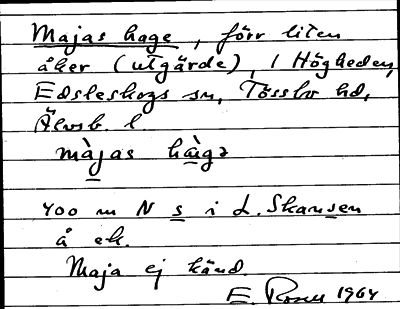 Majas hage, förr liten
åker (utgärde), i Högheden,
Edsleskogs sn, Tössbo hd,
Älvsb. l
màjas hàgə
400 m N s i L. Skansen
å ek.
Maja ej känd.
E. 1964